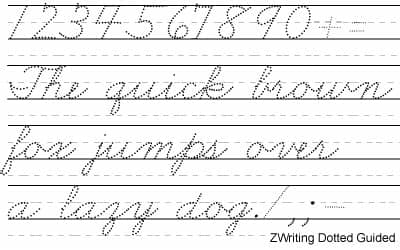 1234567890+=
The quick brown
fox jumps over
a lazy dog./,;·-
ZWriting Dotted Guided